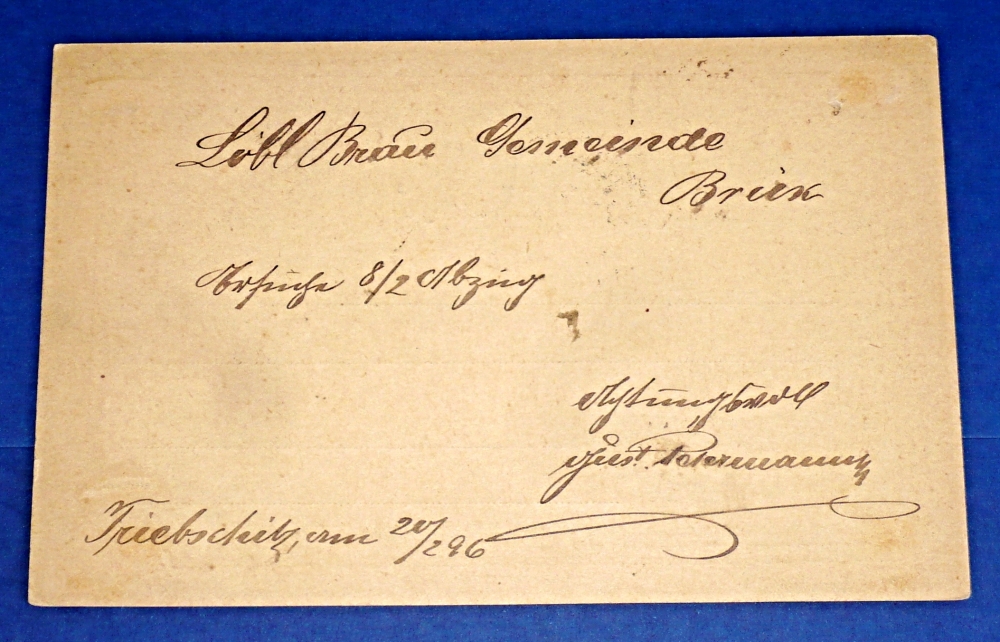 Löbl Bräu Gemeinde
Brüx
Ersuche 8/2 Abzug
Achtungsvoll
Gust. Petermann
Triebschitz, am 20/296